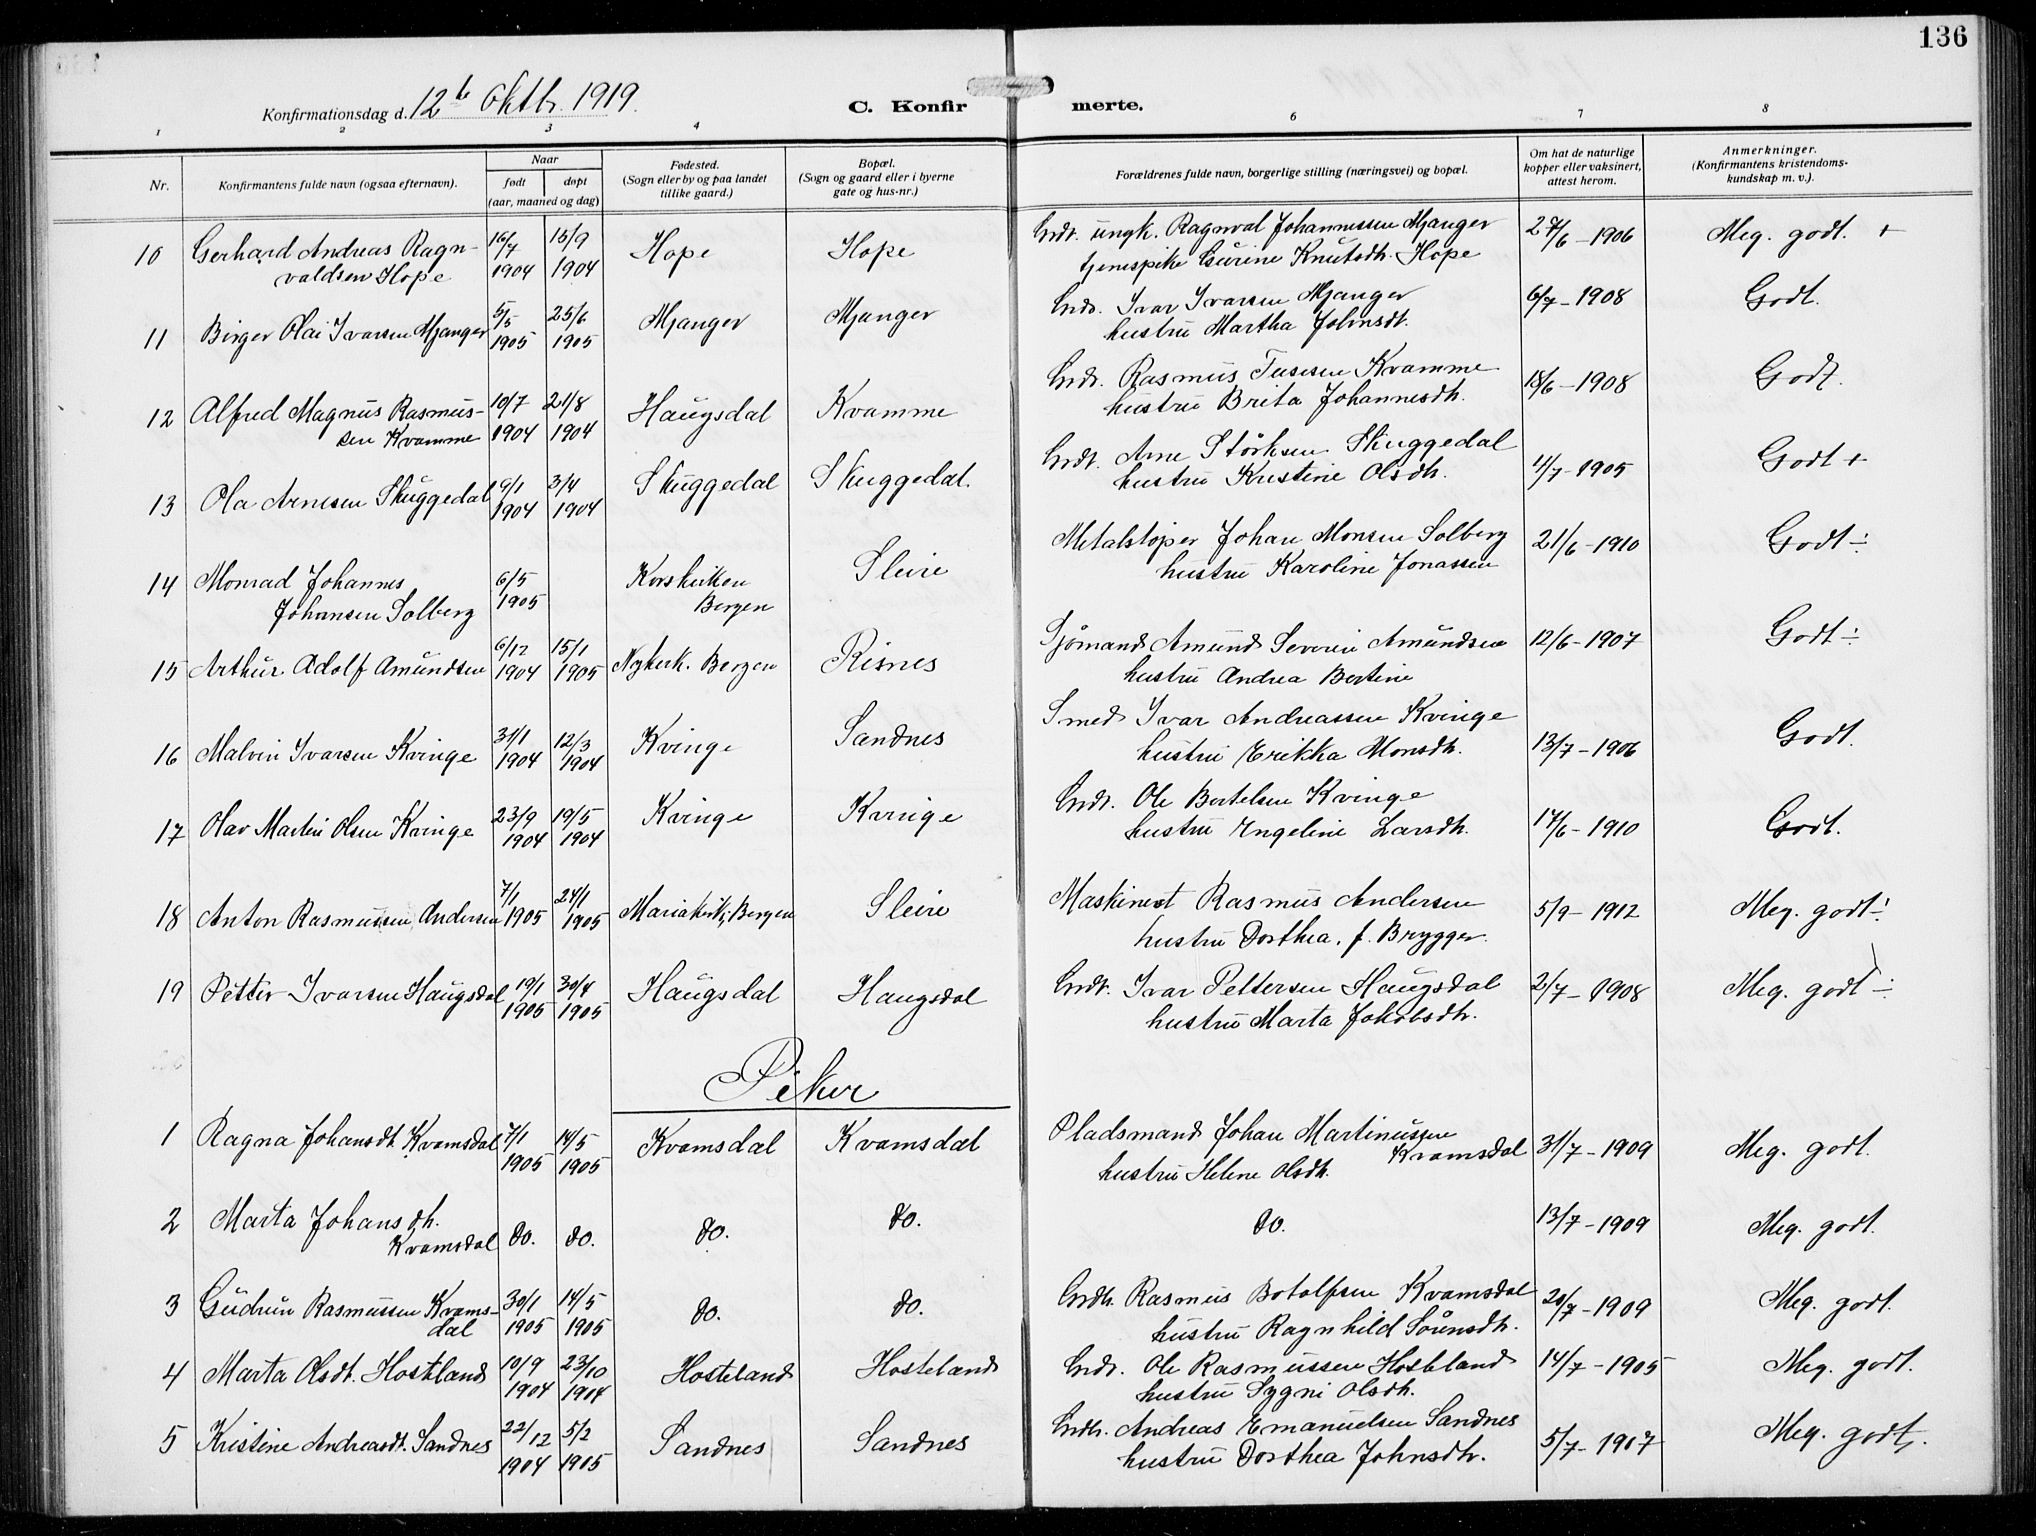 136
Konfirmationsdag d. 12te Oktbr. 1919.
C. Konfirmerte.
1 2 3 4 6 7 8
Nr.
Konfirmantens fulde navn (ogsaa efternavn).
Naar
født døpt
(aar, maaned og dag)
Fødested.
(Sogn eller by og paa landet
tillike gaard.)
Bopæl.
(Sogn og gaard eller i byerne
gate og hus-nr.)
Forældrenes fulde navn, borgerlige stilling (næringsvei) og bopæl.
Om hat de naturlige
kopper eller vaksinert,
attest herom.
Anmerkninger.
(Konfirmantens kristendoms-
kundskap m. v.).
10 Gerhard Andreas Ragn- 16/7 15/9 Hope Hope Grdr. ungk. Ragnval Johannessen Mjanger 27/6 - 1906 Meg. godt. +
valdsen Hope 1904 1904 tjenespike Knutsdtr. Hope
11 Birger Olai Ivarsen Mjanger 5/5 25/6 Mjanger Mjanger Grdr. Ivar Ivarsen Mjanger 6/7 - 1908 Godt.
1905 1905 hustru Martha Johnsdt.
12 Alfred Magnus Rasmus- 10/7 21/8 Haugsdal Kvamme Grdr. Rasmus Kvamme 18/6 - 1908 Godt.
sen Kvamme 1904 1904 hustru Brita Johannesdtr.
13 Ola Arnesen Skuggedal 9/1 3/4 Skuggedal Skuggedal. Grdr. Arne Størksen Skuggedal 4/7 - 1905 Godt +
1904 1904 hustru Kristine Olsdtr.
14 Monrad Johannes 6/5 Korskirken Sleire Metalstøper Johan Monsen Solberg 21/6 - 1910 Godt ÷
Johansen Solberg 1905 Bergen hustru Karoline Jonassen
15 Arthur Adolf Amundsen 6/12 15/1 Nykirk. Bergen Risnes Sjømand Amund Severin Amundsen 12/6 - 1907 Godt ÷
1904 1905 hustru Andrea Bertine
16 Malvin Ivarsen Kvinge 31/1 12/3 Kvinge Sandnes Smed Ivar Andreassen Kvinge 13/7 - 1906 Godt.
1904 1904 hustru Erikka Monsdtr.
17 Olav Martin Olsen Kvinge 23/9 19/5 Kvinge Kvinge Grdr. Ole Bertelsen Kvinge 17/6 - 1910 Godt.
1904 1904 hustru Engeline Larsdtr.
18 Anton Rasmussen Andersen 7/1 24/1 Mariakirk, Bergen Sleire Maskinest Rasmus Andersen 5/9 - 1912 Meg. godt ÷
1905 1905 hustru Dorthea, f. Brygger.
19 Petter Ivarsen Haugsdal 19/1 30/4 Haugsdal Haugsdal Grdr. Ivar Pettersen Haugsdal 2/7 - 1908 Meg. godt ÷
1905 1905 hustru Marta Jakobsdtr.
Piker
1 Ragna Johansdt. Kvamsdal 7/1 14/5 Kvamsdal Kvamsdal Pladsmand Johan Martinussen 31/7 - 1909 Meg. godt.
1905 1905 Kvamsdal
hustru Helene Olsdtr.
2 Marta Johansdtr. do. do. do. do. do. 13/7 - 1909 Meg. godt.
Kvamsdal
3 Gudrun Rasmussen Kvams- 30/1 14/5 do. do. Grdbr. Rasmus Botolfsen Kvamsdal 20/7 - 1909 Meg. godt.
dal 1905 1905 hustru Ragnhild Sørensdtr.
4 Marta Olsdt. Hosteland 10/9 23/10 Hosteland Hosteland Grdr. Ole Rasmussen Hosteland 14/7 - 1905 Meg. godt.
1904 1904 hustru Sygni Olsdtr.
5 Kristine Andreasdt. Sandnes 22/12 5/2 Sandnes Sandnes Grdbr. Andreas Emanuelsen Sandnes 5/7 - 1907 Meg. godt.
1904 1905 hustru Dorthea Johnsdtr.